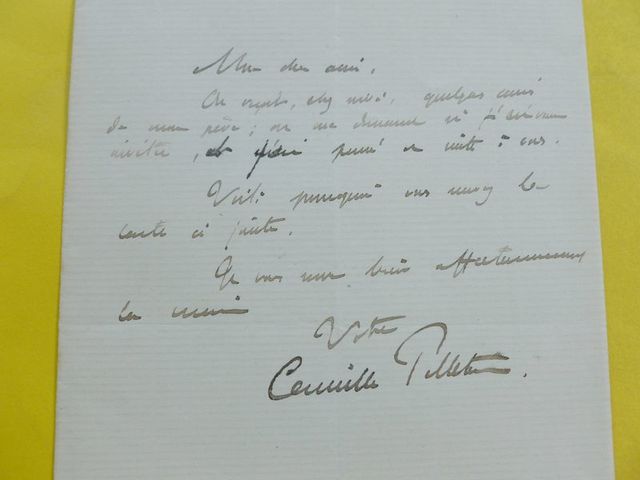 Mon cher ami,
On reçoit, chez moi, quelques amis
de mon père ; on me demande si j'ai
inviter, et j'ai pensé de suite à vous.
Voilà pourquoi vous la
carte ci jointe.
Je vous serre bien affectueusement
la main
Votre
Camille Pelletan.